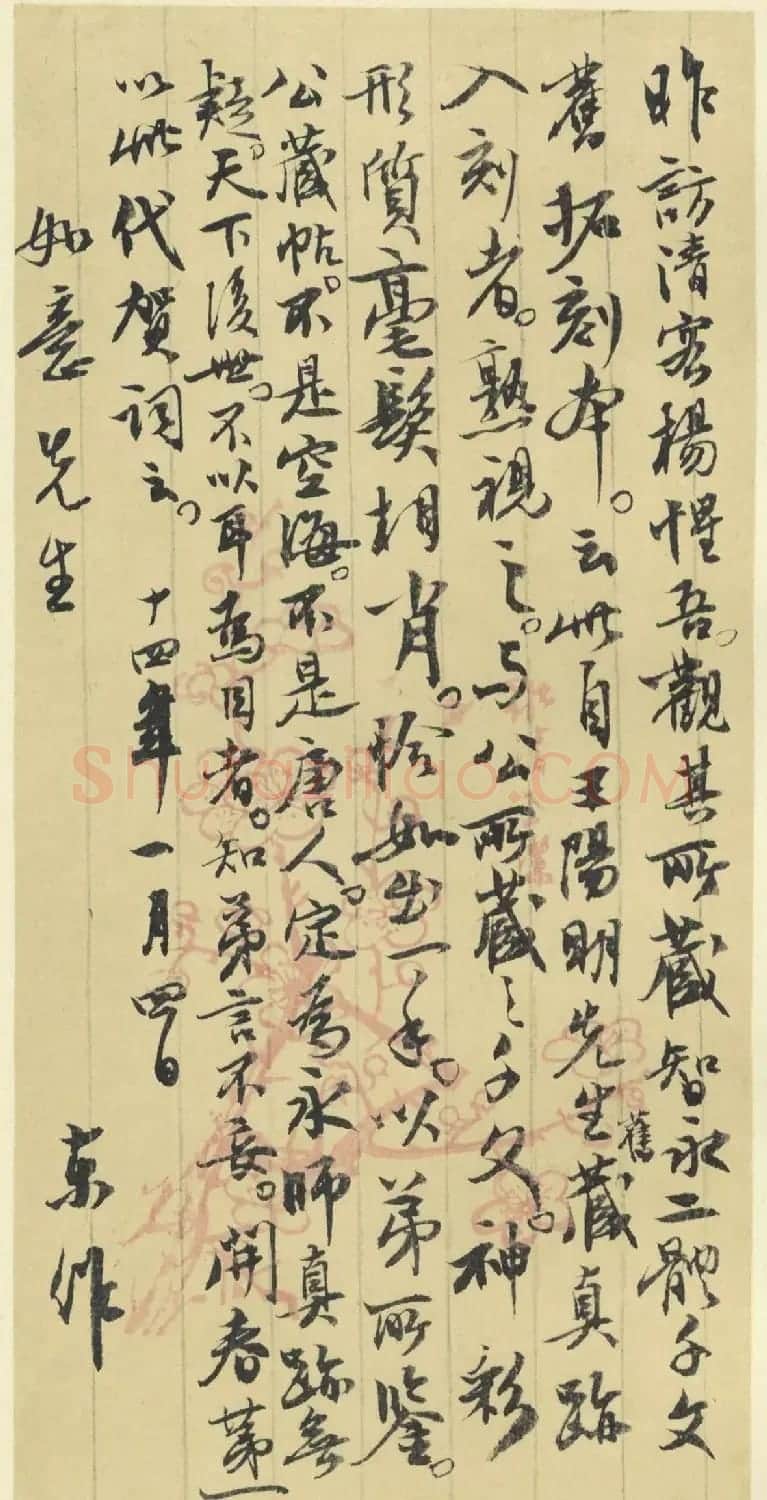 昨訪清客楊惺吾。觀其所藏智永二體千文
舊拓刻本。云此自王陽明先生舊藏真跡
入刻者。熟視之。与公所藏之千文。神彩
形質毫髮相肖。恰如出一手。以弟所鑒。
公藏帖。不是空海。不是唐人。定為永師真跡無
疑。天下後世。不以耳為目者。知弟言不妄。開春第一
以此代賀詞云。 十四年一月四日
如意先生 東作
ShuGeHao.COM